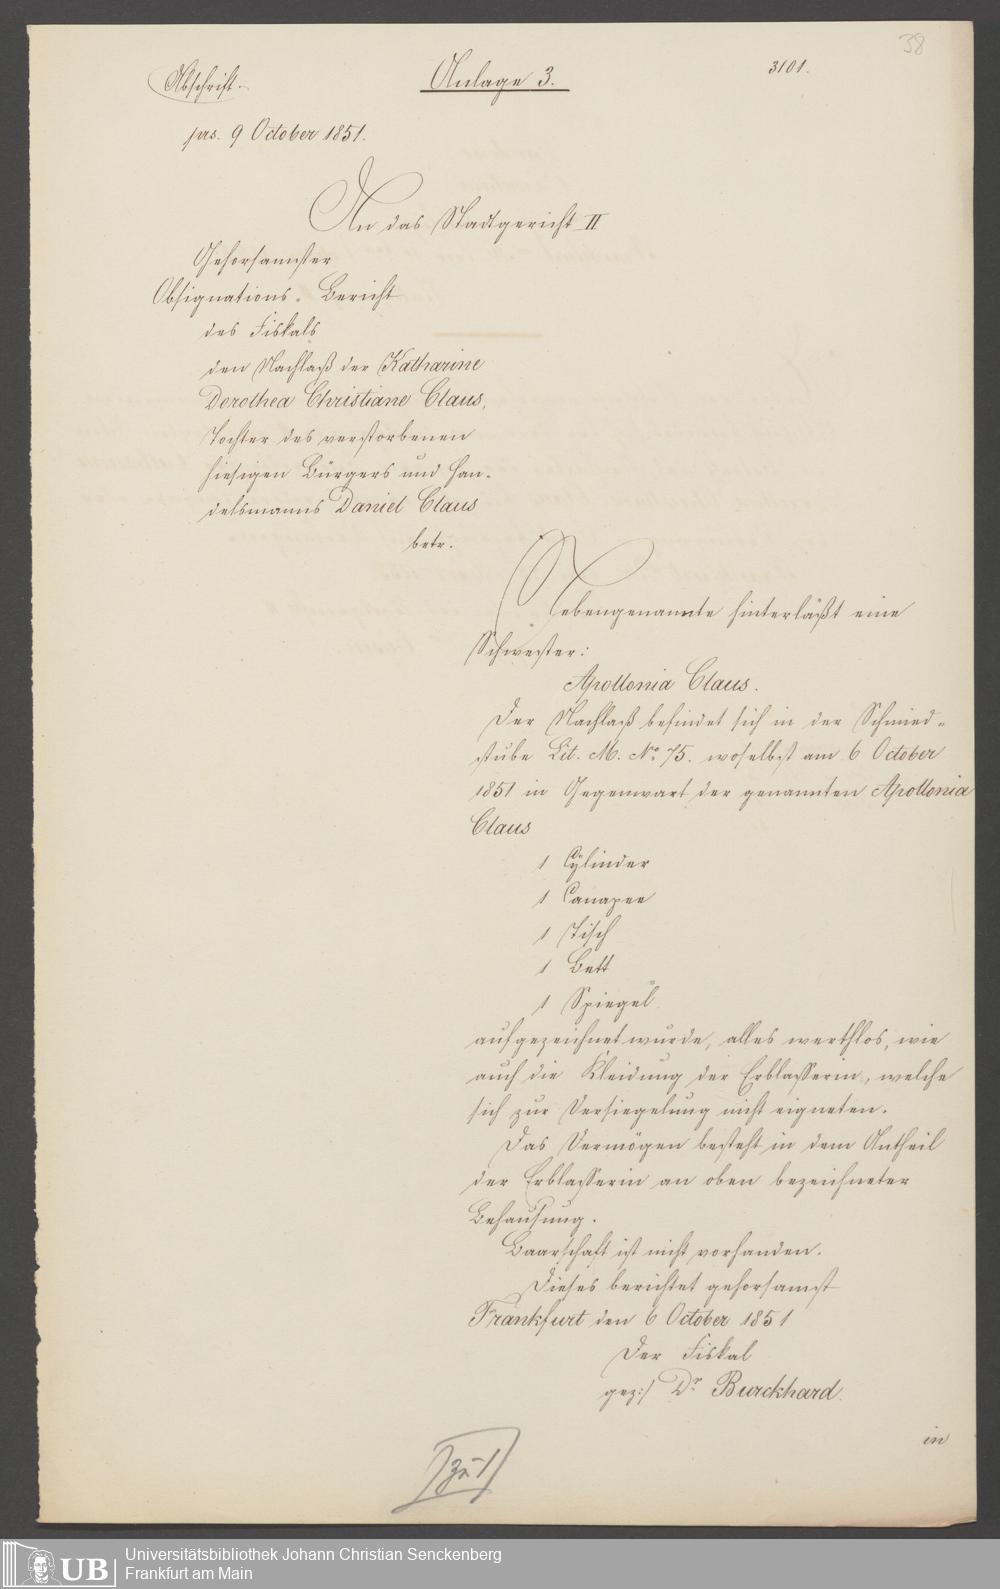 38
Abschrift.
Anlage 3.
3101.
prs. 9 October 1851.
An das Stadtgericht II
Gehorsamster
Obsignations-Bericht
des Fiskals
den Nachlaß der Katharine
Dorothea Christiane Claus,
Tochter des verstorbenen
hiesigen Bürgers und Han-
delsmanns Daniel Claus
betr.
Nebengenannte hinterläßt eine
Schwester:
Apollonia Claus.
Der Nachlaß befindet sich in der Schmied-
stube Lit. M. No. 75. woselbst am 6 October
1851 in Gegenwart der genannten Apollonia
Claus
1 Cylinder
1 Canapee
1 Tisch
1 Bett
1 Spiegel
aufgezeichnet wurde, alles werthlos, wie
auch die Kleidung der Erblasserin, welche
sich zur Versiegelung nicht eigneten.
Das Vermögen besteht in dem Antheil
der Erblasserin an oben bezeichneter
Behausung.
Baarschaft ist nicht vorhanden.
Dieses berichtet gehorsamst
Frankfurt den 6 October 1851
Der Fiskal
gez:/ Dr. Burckhard.
in
zu 1
UB
Universitätsbibliothek Johann Christian Senckenberg
Frankfurt am Main